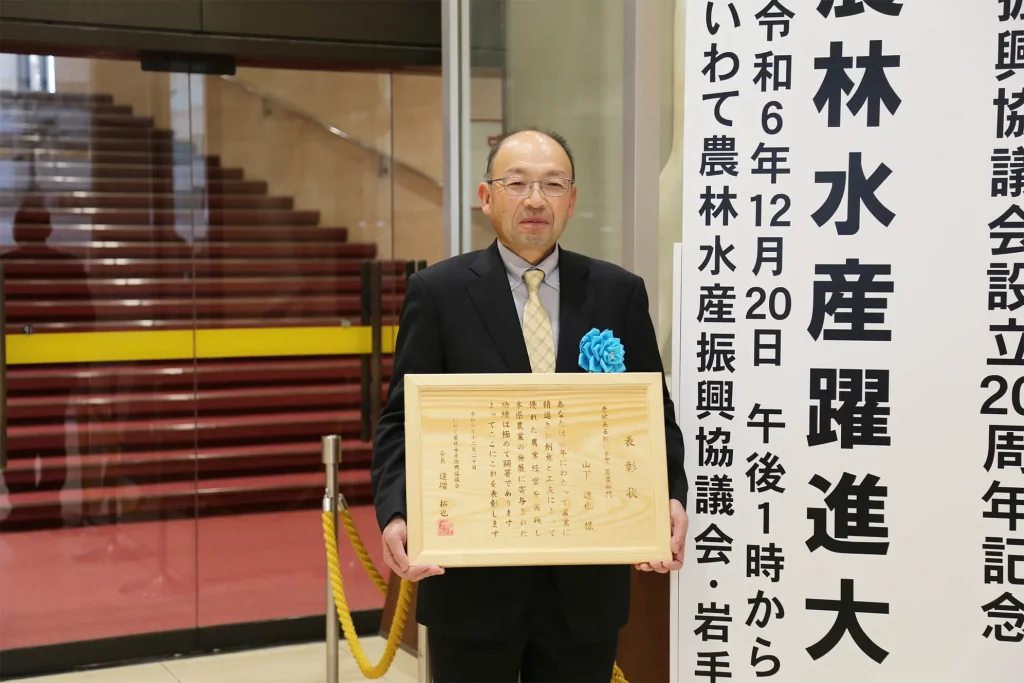 振興協議会設立20周年記念
農林水産躍進大
令和6年12月20日 午後1時から
いわて農林水産振興協議会・岩手
表彰状
農業部門
山下 様
あなたは 年にわたって農業に
精進され創意と工夫によって
優れた農業経営を実践し
本県農業の発展に寄与された
功績は極めて顕著であります
よってここにこれを表彰します
令和六年十二月二十日
いわて農林水産振興協議会
会長 達増 拓也